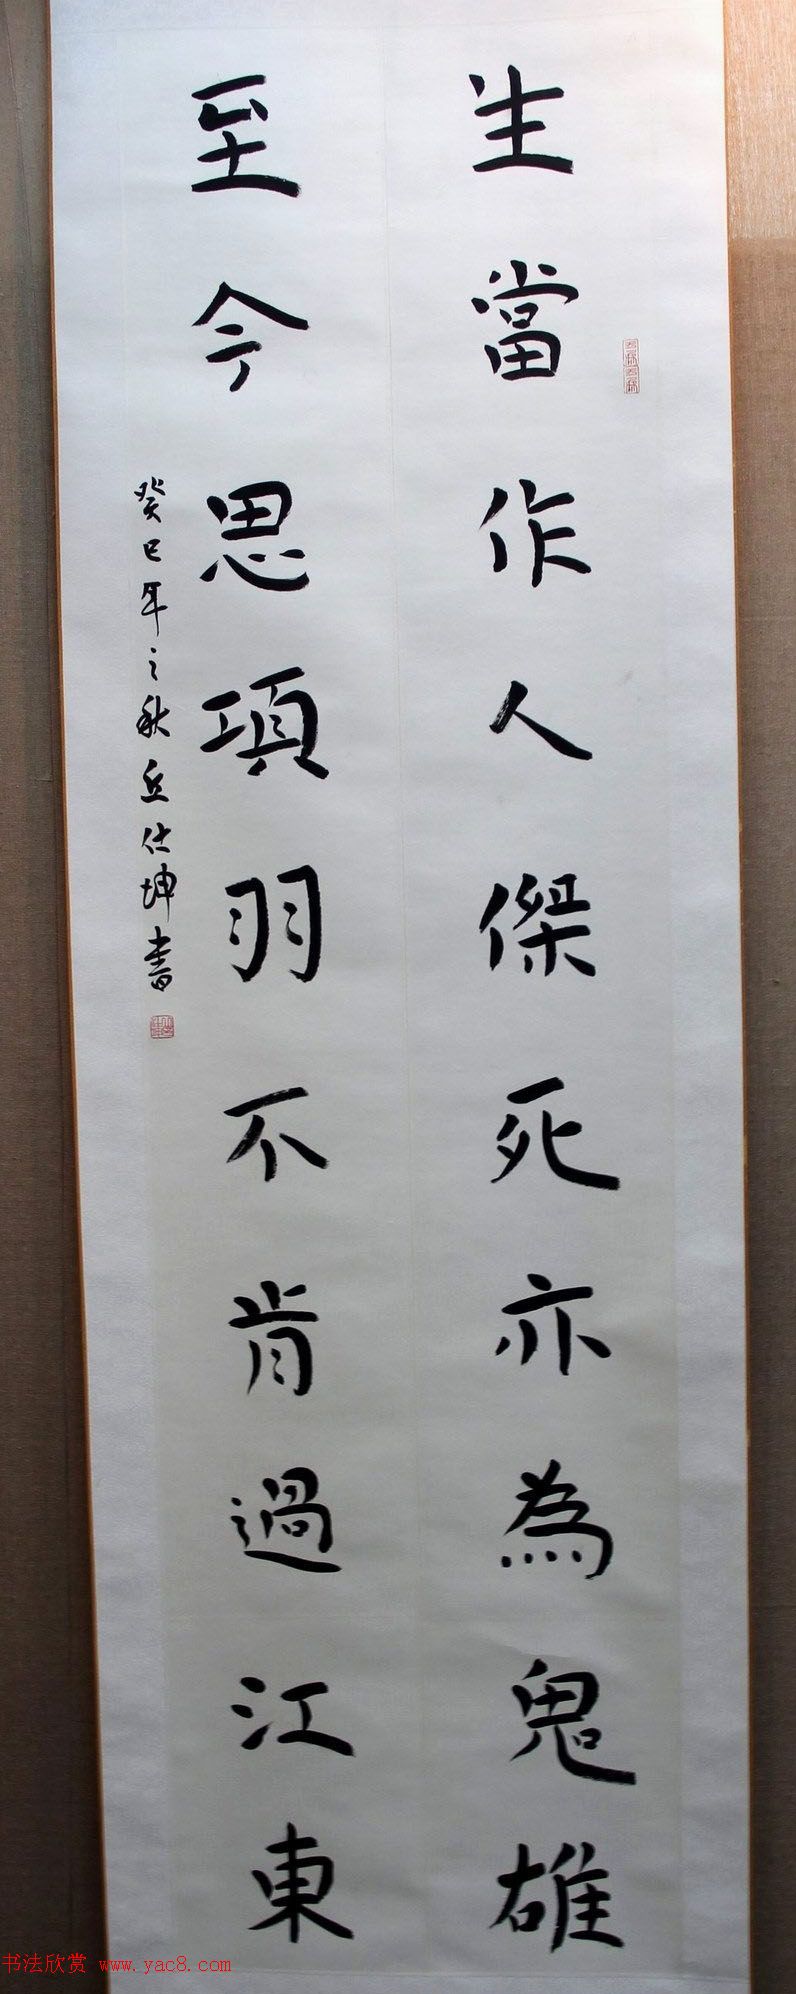 生當作人傑死亦為鬼雄
至今思項羽不肯過江東
癸巳年之秋丘仕坤書
书法欣赏 www.yac8.com